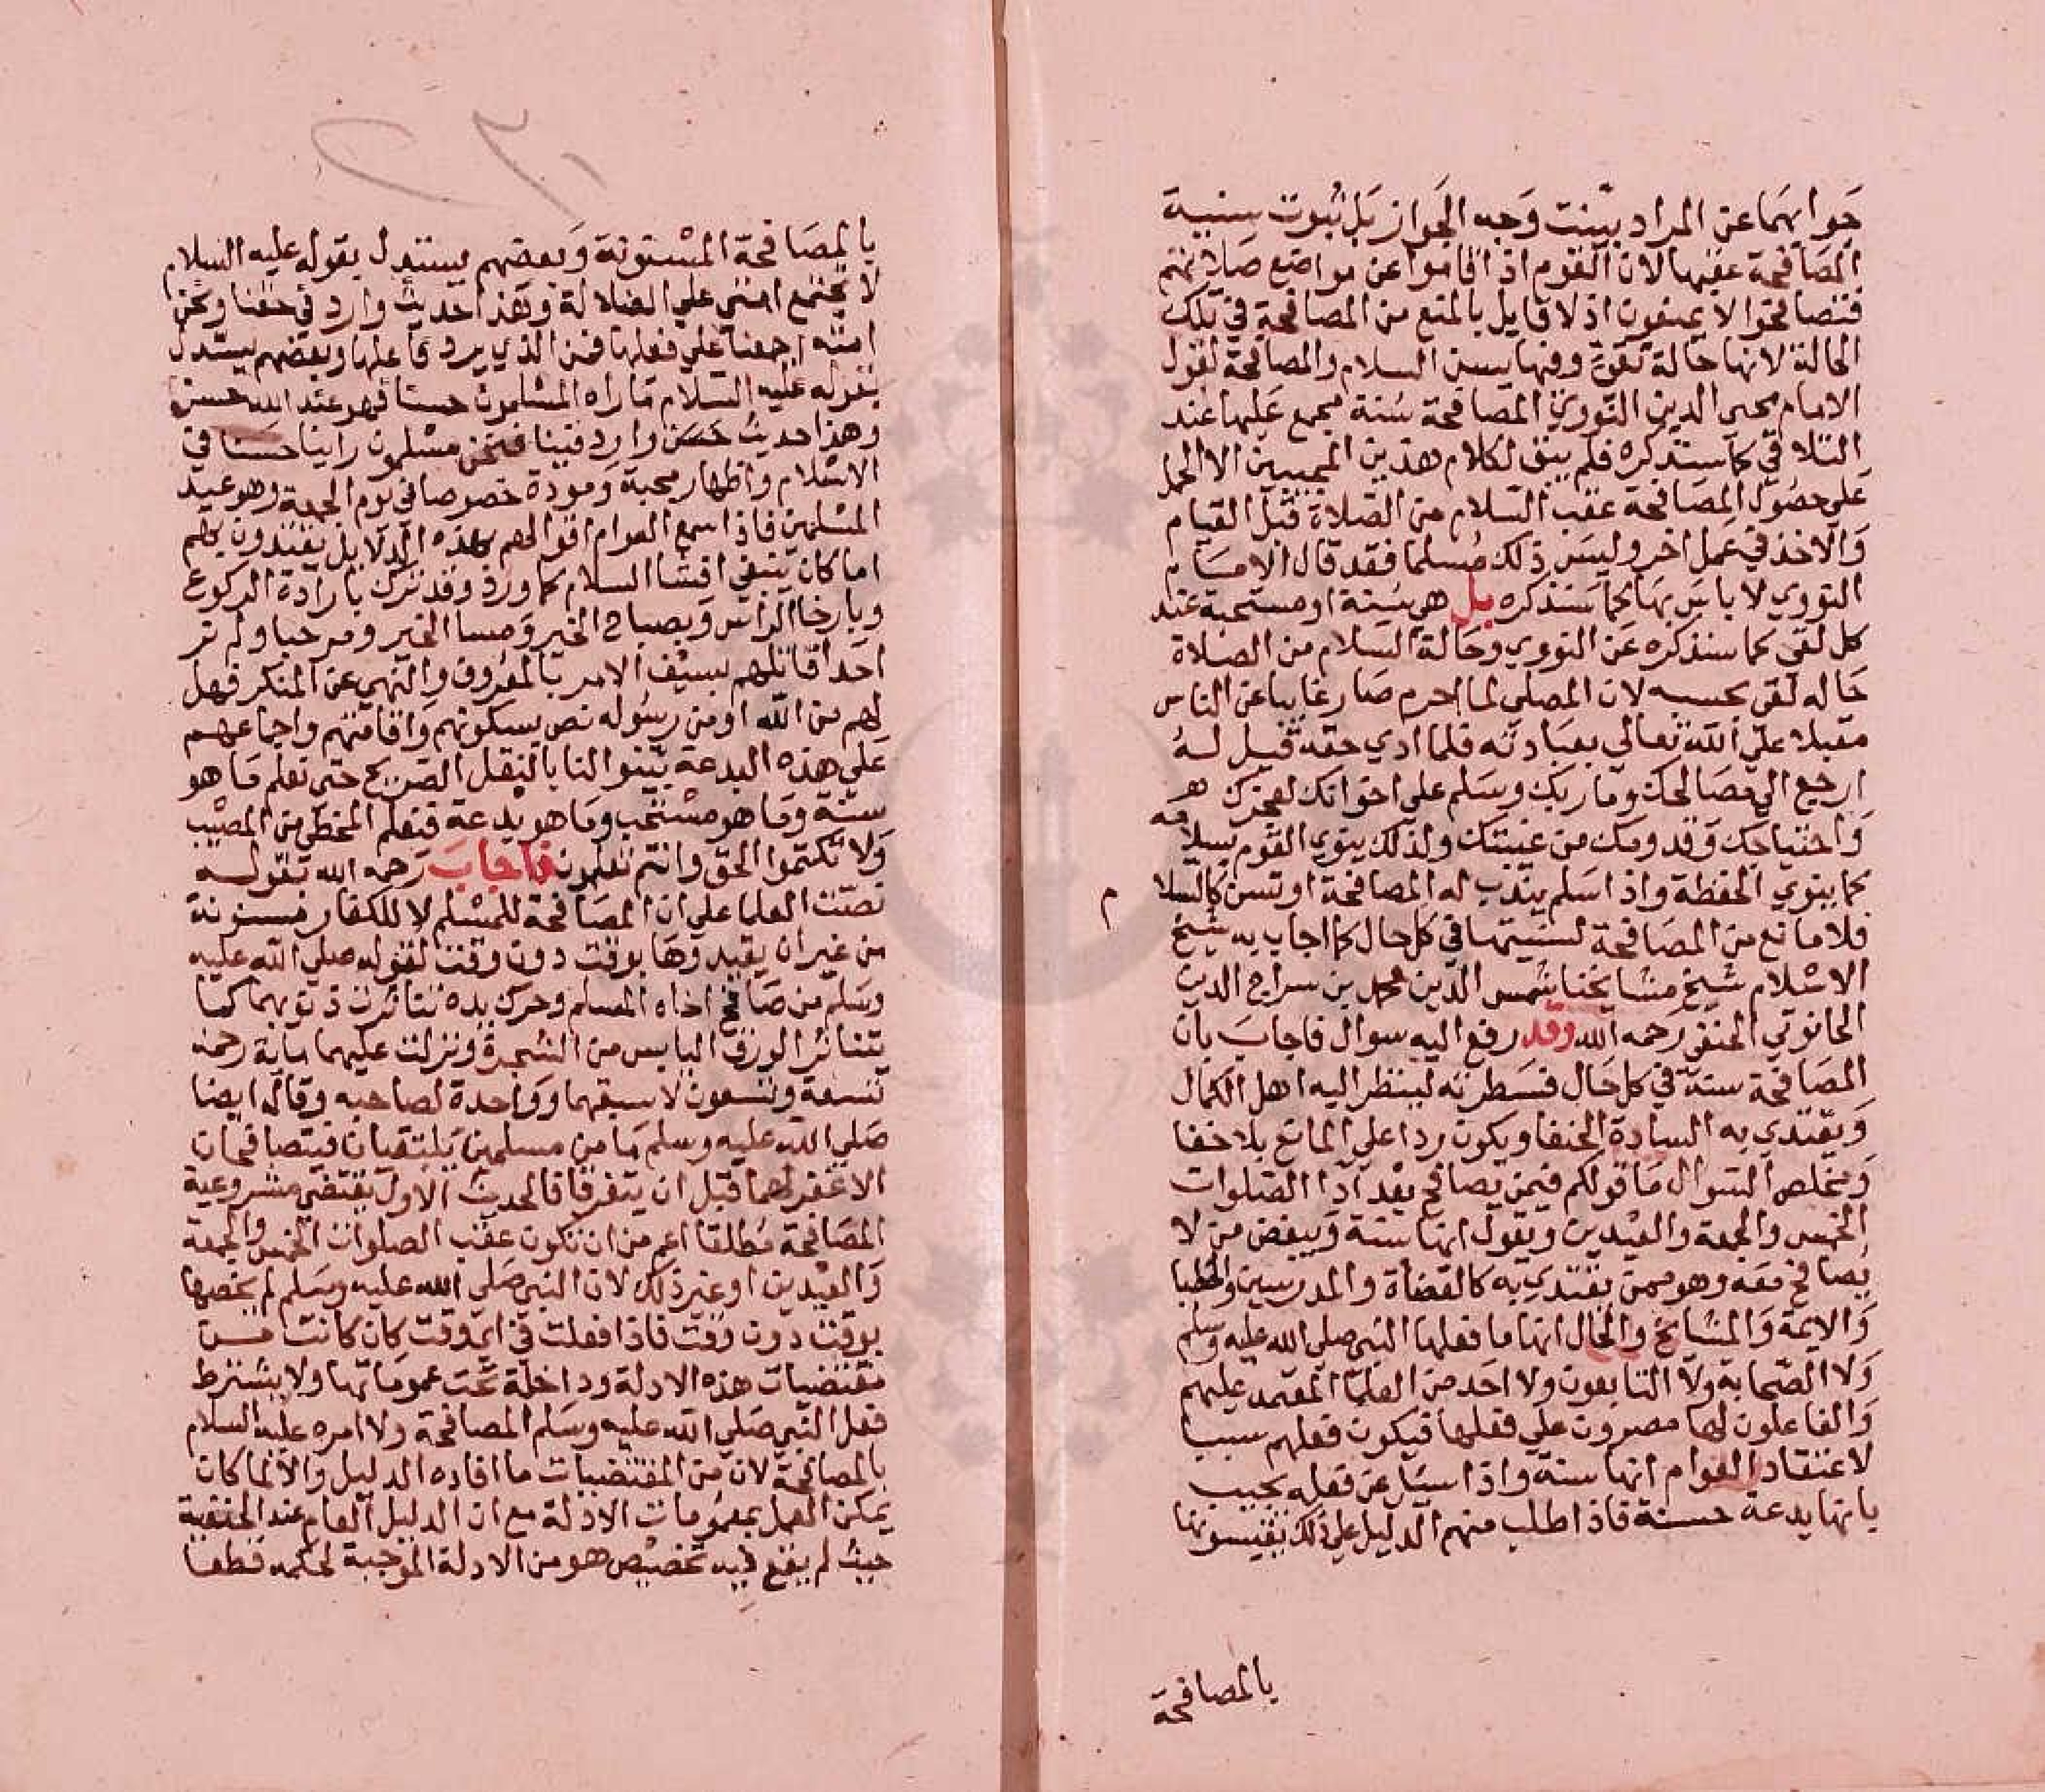 جوابهما عن المراد بينت وجه الجواز بل ثبوت سنية
المصافحة عقبها لان القوم اذا قاموا عن مواضع صلاتهم
فتصافحوا لا يمنعون اذ لا قايل بالمنع من المصافحة في تلك
الحالة لانها حالة وفيها يسن السلام والمصافحة لقول
الامام محيي الدين النووي المصافحة سنة مجمع عليها عند
التلاقي كما سنذكره فلم يبق لكلام هذين المجيبين الا الحمل
على حصول المصافحة عقب السلام من الصلاة قبل القيام
والاخذ في عمل اخر وليس ذلك مسلما فقد قال الامام
النووي لا باس بها كما سنذكره بل هي سنة او مستحبة عند
كل لقي كما سنذكره عن النووي وحالة السلام من الصلاة
حاله لقي بحسبه لان المصلي لما احرم صار غايبا عن الناس
مقبلا على الله تعالي بعبادته فلما ادي حقه قيل له
ارجع الي مصالحك وماربك وسلم على اخوانك
واحتياجك وقدومك من غيبتك ولذلك ينوي القوم بسلامه
كما ينوي الحفظة واذا سلم يندب له المصافحة او تسن كالسلام
فلا مانع من المصافحة لسنيتها في كل حال كما اجاب به شيخ
الاسلام شيخ مشايخنا شمس الدين محمد بن سراج الدين
الحانوتي الحنفي رحمه الله وقد رفع اليه سوال فاجاب بان
المصافحة سنة في كل حال فسطرته لينظر اليه اهل الكمال
ويقتدي به السادة الحنفا ويكون ردا على المانع بلا خفا
وملخص السوال ما قولكم فيمن يصافح بعد آدا الصلوات
الخمس والجمعة والعيدين ويقول انها سنة ويبغض من لا
يصافح معه وهو ممن يقتدي به كالقضاة والمدرسين والخطبا
والايمة والمشايخ والحال انها ما فعلها النبي صلى الله عليه وسلم
ولا الصحابة ولا التابعون ولا احد من العلما المعتمد عليهم
والفاعلون لها مصرون على فعلها فيكون فعلهم سببا
لاعتقاد العوام انها سنة واذا سيل عن فعله يجيب
بانها بدعة حسنة فاذا طلب منهم الدليل على ذلك يقيسونها
بالمصافحة
بالمصافحة المسنونة وبعضهم يستدل بقوله عليه السلام
لا تجتمع امتي على الضلالة وهذا حديث وارد في حقنا ونحن
امته اجمعنا علي فعلها فمن الذي يرد علينا وبعضهم يستدل
بقوله عليه السلام ما راه المسلمون حسنا فهو عند الله حسن
وهذا حديث حسن وارد فينا فنحن مسلمون راينا حسنا في
الاسلام واظهار محبة ومودة خصوصا في يوم الجمعة وهو عيد
المسلمين فاذا سمع العوام اقوالهم هذه الدلايل يقتدون بهم
اما كان ينبغي افشا السلام كما ورد وقد ترك بارادة الركوع
وبارخا الراس وبصباح الخير ومسا الخير ومرحبا ولم نر
احدا قاتلهم بسيف الامر بالمعروف والنهي عن المنكر فهل
لهم من الله او من رسوله نص بسكوتهم واقامتهم واجماعهم
على هذه البدعة بينوا لنا بالنقل الصريح حتى نعلم ما هو
سنة وما هو مستحب وما هو بدعة فنعلم المخطي من المصيب
ولا تكتموا الحق وانتم تعلمون فاجاب رحمه الله بقوله
نصت العلما على ان المصافحة للمسلم لا للكفار مسنونة
من غير ان يقيدوها بوقت دون وقت لقوله صلى الله عليه
وسلم من صافح اخاه المسلم وحرك يده تناثرت ذنوبهما كما
يتناثر الورق اليابس من الشجرة ونزلت عليهما ماية رحمة
تسعة وتسعون لاسبقهما وواحدة لصاحبه وقال ايضا
صلى الله عليه وسلم ما من مسلمين يلتقيان فيتصافحان
الا غفر لهما قبل ان يتفرقا فالحديث الاول يقتضي مشروعية
المصافحة مطلقا اعم من ان تكون عقب الصلوات الخمس والجمعة
والعيدين او غير ذلك لان النبي صلى الله عليه وسلم لم يخصها
بوقت دون وقت فاذا فعلت في اي وقت كان كانت من
مقتضيات هذه الادلة وداخلة تحت عموماتها ولا يشترط
فعل النبي صلى الله عليه وسلم المصافحة ولا امره عليه السلام
بالمصافحة لان من المقتضيات ما افاده الدليل والا لما كان
يمكن العمل بعمومات الادلة مع ان الدليل العام عند الحنفية
حيث لم يقع فيه تخصيص هو من الادلة الموجبة لحكمه قطعا